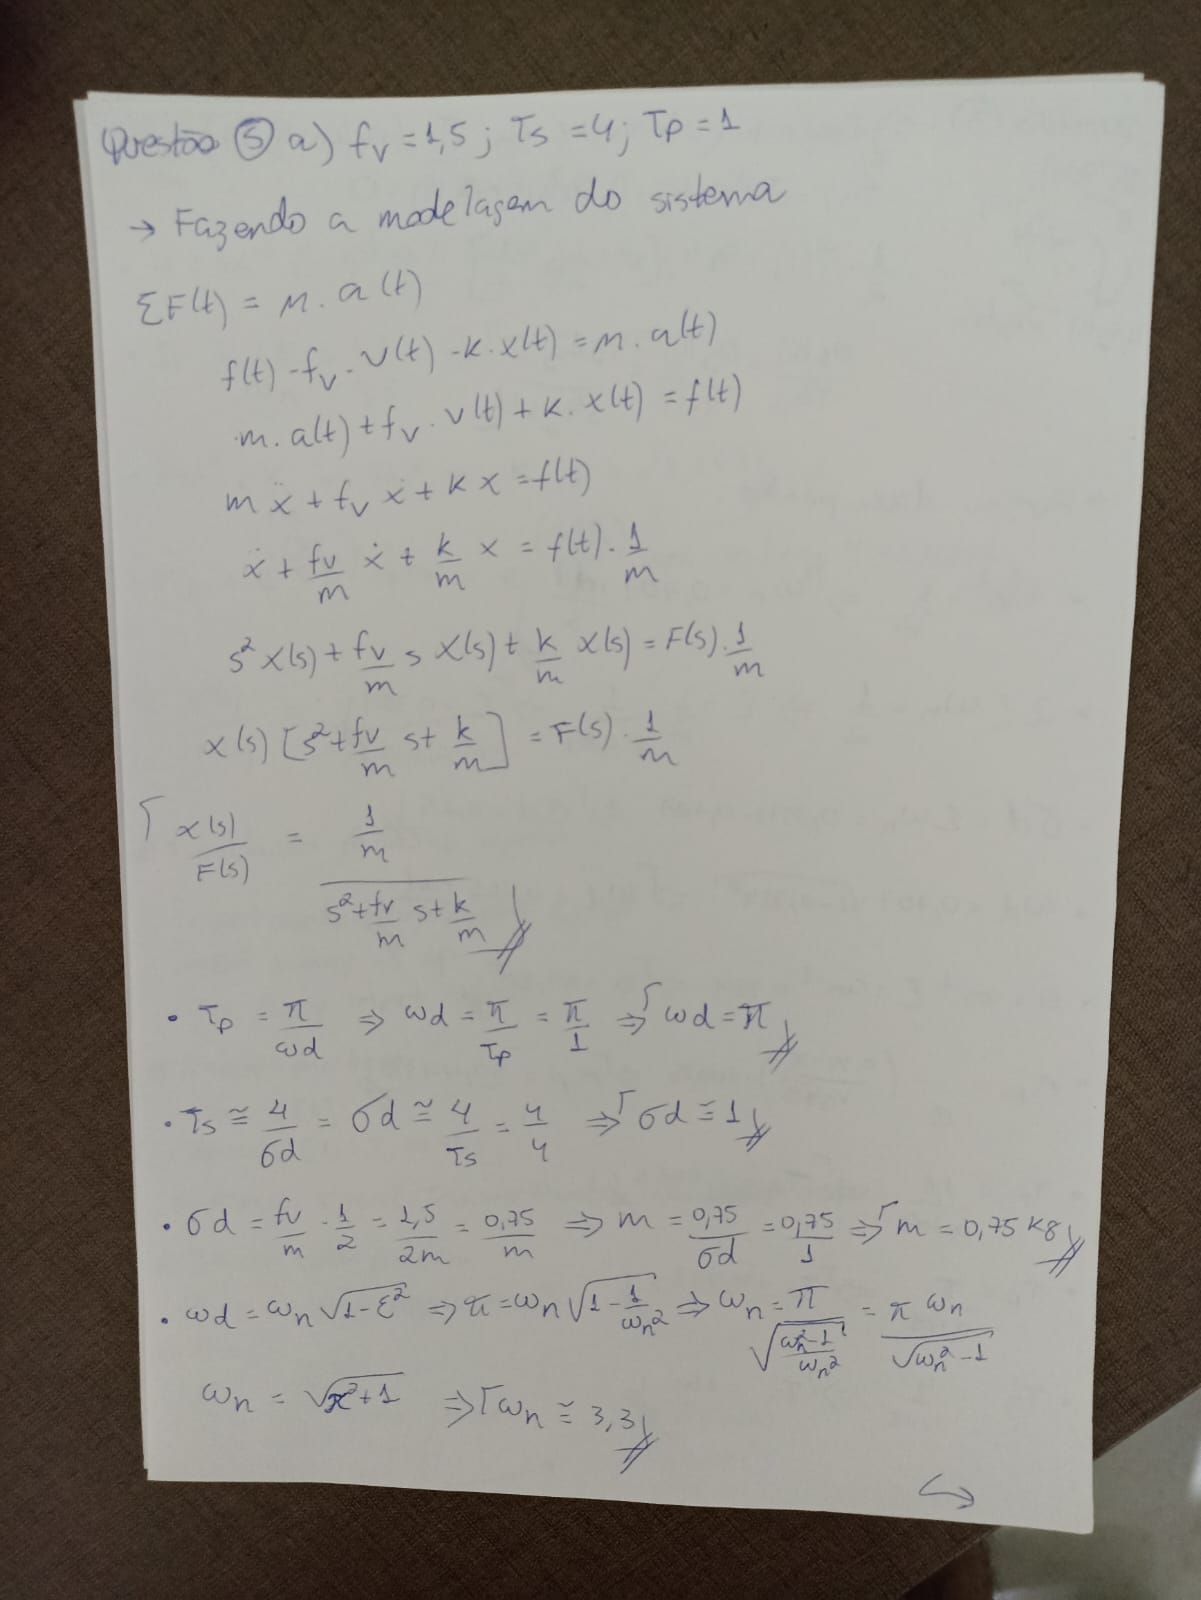 Questão 5 a) fv = 1,5 ; Ts = 4 ; Tp = 1
→ Fazendo a modelagem do sistema
ΣF(t) = m . a(t)
f(t) - fv . v(t) - k . x(t) = m . a(t)
m . a(t) + fv . v(t) + k . x(t) = f(t)
m ẍ + fv ẋ + k x = f(t)
ẍ + fv/m ẋ + k/m x = f(t) . 1/m
s² X(s) + fv/m s X(s) + k/m X(s) = F(s) . 1/m
X(s) [s² + fv/m s + k/m] = F(s) . 1/m
X(s)/F(s) = (1/m)/(s² + fv/m s + k/m)
• Tp = π/ωd ⇒ ωd = π/Tp = π/1 ⇒ ωd = π
• Ts ≅ 4/σd = σd ≅ 4/Ts = 4/4 ⇒ σd ≅ 1
• σd = fv/m . 1/2 = 1,5/2m = 0,75/m ⇒ m = 0,75/σd = 0,75/1 ⇒ m = 0,75 kg
• ωd = ωn √(1-ξ²) ⇒ π = ωn √(1 - 1/ωn²) ⇒ ωn = π/√((ωn²-1)/ωn²) = π ωn/√(ωn²-1)
ωn = √(π²+1) ⇒ ωn ≅ 3,3